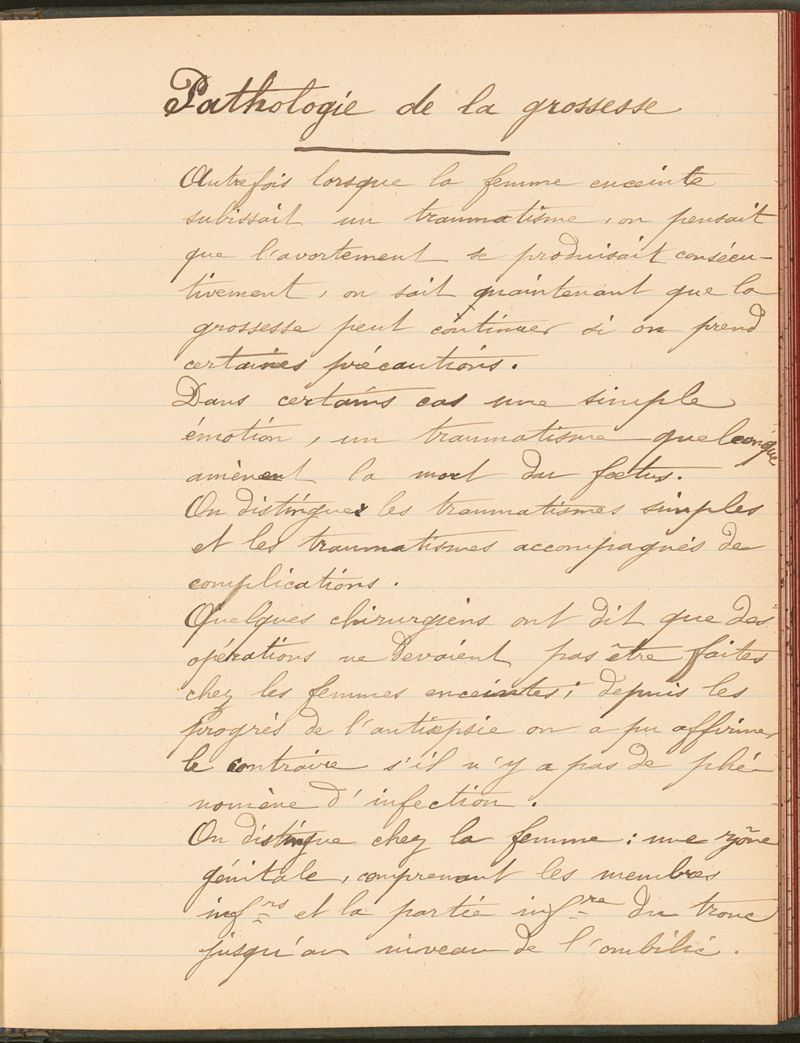 Pathologie de la grossesse
Autrefois lorsque la femme enceinte
subissait un traumatisme, on pensait
que l'avortement se produisait consécu-
tivement, on sait maintenant que la
grossesse peut continuer si on prend
certaines précautions.
Dans certains cas une simple
émotion, un traumatisme quelconque
amènent la mort du fœtus.
On distingue les traumatismes simples
et les traumatismes accompagnés de
complications.
Quelques chirurgiens ont dit que des
opérations ne devaient pas être faites
chez les femmes enceintes; depuis les
progrès de l'antisepsie on a pu affirmer
le contraire s'il n'y a pas de phé-
nomène d'infection.
On distingue chez la femme: une zône
génitale, comprenant les membres
inf-rs et la partie inf-re du tronc
jusqu'au niveau de l'ombilic.